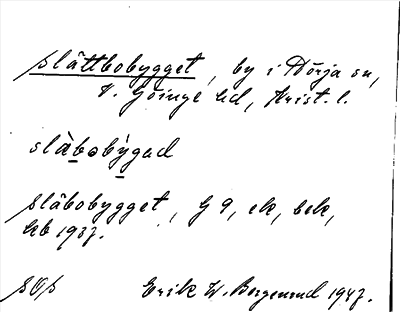 Slättbobygget, by i Nörja sn,
V. Göinge hd, Krist. l.
slàbobỳgad
Släbobygget, G 9, ek, bek,
hb 1937.
SOS Erik W. Bergenrud 1947.